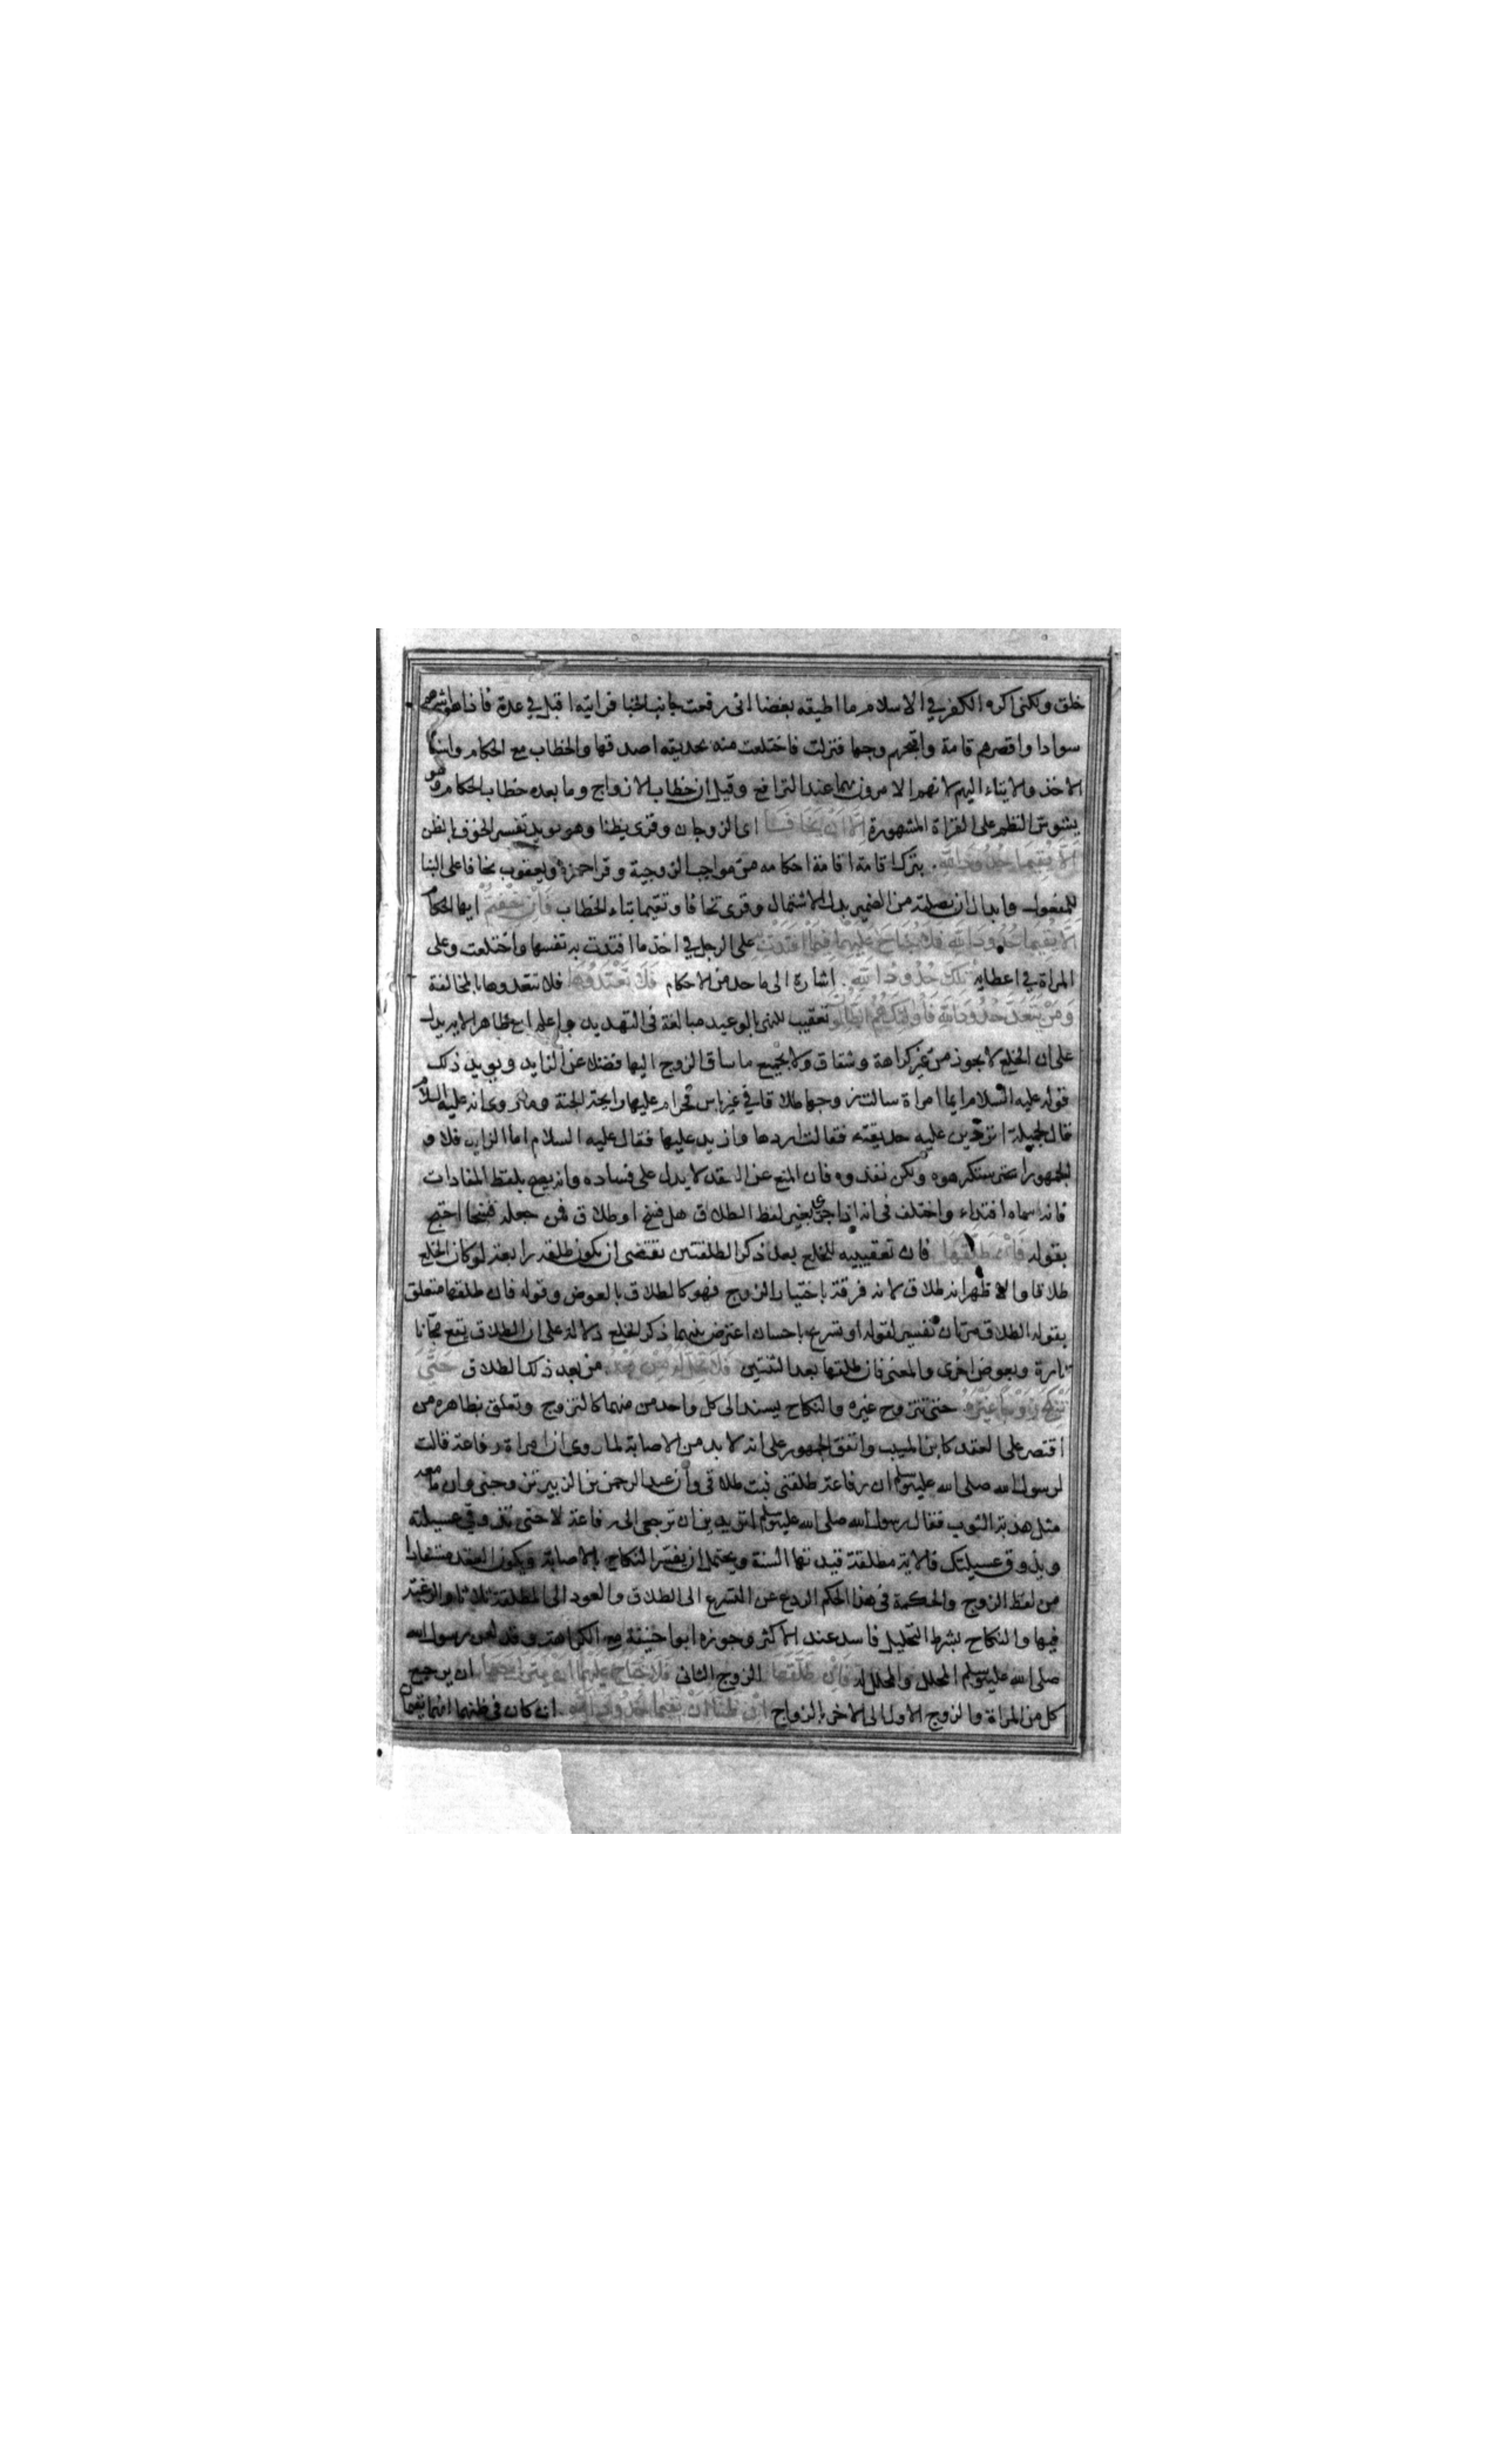 خلق ولكنى اكره الكفر في الاسلام ما اطيقه بغضا انى رفعت جانب الخبا فرايته اقبل في عدة فاذا هو اشدهم
سوادا واقصرهم قامة واقبحهم وجها فنزلت فاختلعت منه بحديقة اصدقها والخطاب مع الحكام واسناد
الاخذ والايتاء اليهم لانهم الامرون بهما عند الترافع وقيل ان خطاب للازواج وما بعده خطاب للحكام وهو
يشوش النظم على القراة المشهورة الا ان يخافا اى الزوجان وقرى يظنا وهو يويد تفسير الخوف بالظن
الا يقيما حدود الله بترك اقامة احكامه من مواجب الزوجية وقرا حمزة ويعقوب يخافا على البنا
للمفعول وابدال ان بصلته من الضمير بدل الاشتمال وقرى تخافا وتقيما بتاء الخطاب فان خفتم ايها الحكام
الا يقيما حدود الله فلا جناح عليهما فيما افتدت به على الرجل في اخذ ما افتدت به نفسها واختلعت وعلى
المراة في اعطايه تلك حدود الله اشارة الى ما حد من الاحكام فلا تعتدوها فلا تتعدوها بالمخالفة
ومن يتعد حدود الله فاولئك هم الظالمون تعقيب للنهى بالوعيد مبالغة فى التهديد واعلم ان ظاهر الاية يدل
على ان الخلع لا يجوز من غير كراهة وشقاق ولا بجميع ما ساق الزوج اليها فضلا عن الزايد ويويد ذلك
قوله عليه السلام ايما امراة سالت زوجها طلاقا في غير باس فحرام عليها رايحة الجنة وما روى انه عليه السلام
قال لجميلة اتردين عليه حديقته فقالت اردها وازيد عليها فقال عليه السلام اما الزايد فلا و
الجمهور استكرهوه ولكن نفذوه فان المنع عن العقد لا يدل على فساده وانه يصح بلفظ المفادات
فانه سماه افتداء واختلف فى انه اذا جرى بغير لفظ الطلاق هل فسخ او طلاق فمن جعله فسخا احتج
بقوله فان طلقها فان تعقيبه للخلع بعد ذكر الطلقتين تقتضى ان يكون طلقه رابعة لو كان الخلع
طلاقا والاظهر انه طلاق لانه فرقة باختيار الزوج فهو كالطلاق بالعوض وقوله فان طلقها متعلق
بقوله الطلاق مرتان تفسير لقوله او تسريح باحسان اعترض بينهما ذكر الخلع دلالة على ان الطلاق يقع مجانا
تارة وبعوض اخرى والمعنى فان طلقها بعد الثنتين فلا تحل له من بعد من بعد ذلك الطلاق حتى
تنكح زوجا غيره حتى تتزوج غيره والنكاح يسند الى كل واحد من منهما كالتزوج وتعلق بظاهره من
اقتصر على العقد كابن المسيب واتفق الجمهور على انه لا بد من الاصابة لما روى ان امراة رفاعة قالت
لرسول الله صلى الله عليه وسلم ان رفاعة طلقنى فبت طلاقى وان عبد الرحمن بن الزبير تزوجنى وان ما معه
مثل هدبة الثوب فقال رسول الله صلى الله عليه وسلم اتريدين ان ترجعى الى رفاعة لا حتى تذوقى عسيلته
ويذوق عسيلتك فالاية مطلقة قيدتها السنة ويحتمل ان يفسر النكاح بالاصابة ويكون العقد مستفادا
من لفظ الزوج والحكمة فى هذا الحكم الردع عن التسرع الى الطلاق والعود الى المطلقة ثلاثا والرغبة
فيها والنكاح بشرط التحليل فاسد عند الاكثر وجوزه ابو حنيفة مع الكراهة وقد لعن رسول الله
صلى الله عليه وسلم المحلل والمحلل له فان طلقها الزوج الثانى فلا جناح عليهما ان يتراجعا ان يرجع
كل من المراة والزوج الاول الى الاخر بالزواج ان ظنا ان يقيما حدود الله ان كان فى ظنهما انهما يقيمان